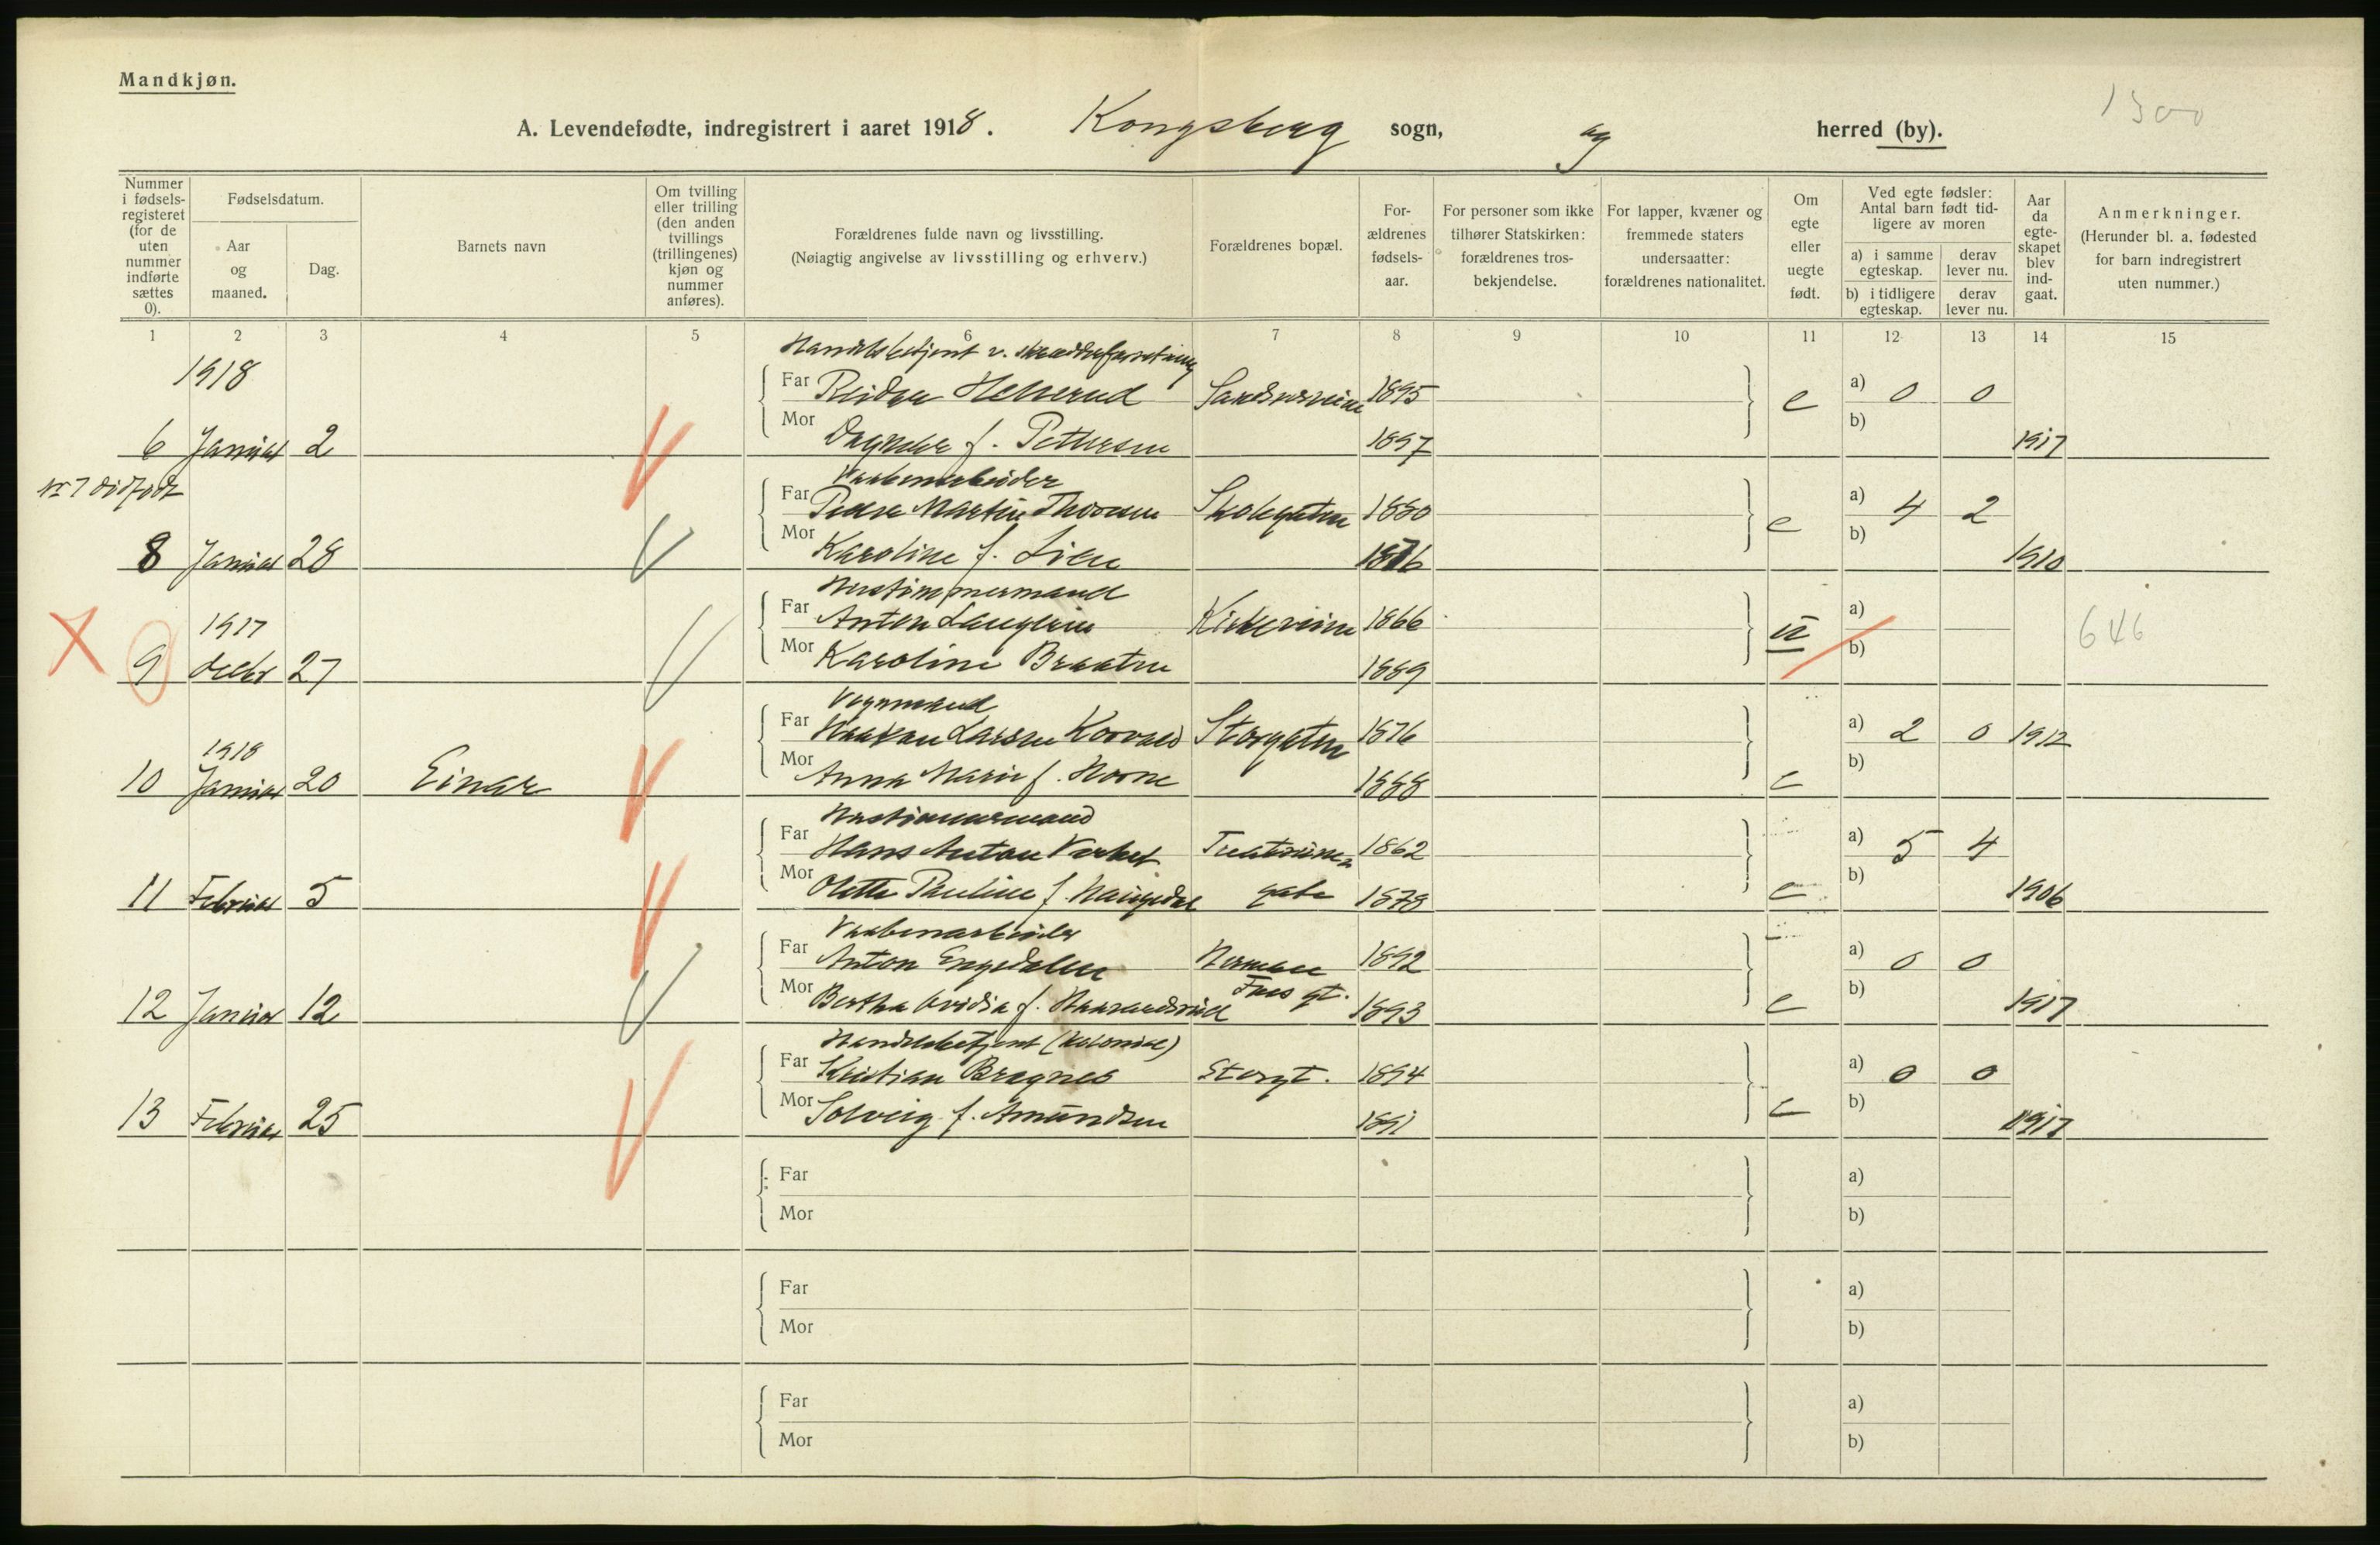 Mandkjøn.
1300
A. Levendefødte, indregistrert i aaret 1918. Kongsberg sogn, og herred (by).
Nummer i fødsels-registeret (for de uten nummer indførte sættes 0).
Fødselsdatum.
Aar og maaned.
Dag.
Barnets navn
Om tvilling eller trilling (den anden tvillings (trillingenes) kjøn og nummer anføres).
Forældrenes fulde navn og livsstilling.
(Nøiagtig angivelse av livsstilling og erhverv.)
Forældrenes bopæl.
For-ældrenes fødsels-aar.
For personer som ikke tilhører Statskirken: forældrenes tros-bekjendelse.
For lapper, kvæner og fremmede staters undersaatter: forældrenes nationalitet.
Om egte eller uegte født.
Ved egte fødsler: Antal barn født tid-ligere av moren
a) i samme egteskap.
derav lever nu.
b) i tidligere egteskap.
derav lever nu.
Aar da egte-skapet blev ind-gaat.
Anmerkninger.
(Herunder bl. a. fødested for barn indregistrert uten nummer.)
1 2 3 4 5 6 7 8 9 10 11 12 13 14 15
Handelsbetjent v. skrædderforretning
1918 Far Reidar Hellerud 1895 e a) 0 0
6 Januar 2 Mor Dagmar f. Pettersen 1897 b) 1917
Nr 7 dødfødt
Vaabenarbeider
Far Peder Martin Thorsen Skolegaten 1880 e a) 4 2
8 Januar 28 Mor Karoline f. Lien 1876 b) 1910
Hustømmermand
1917 Far Anton Kirkeveien 1866 u a) 646
9 decbr 27 Mor Karoline Braaten 1889 b)
Vognmand
1918 Far Haakon Larsen Korvald Storgaten 1876 a) 2 0 1912
10 Januar 20 Einar Mor Anna Marie f. Moone 1888 e b)
Hustømmermand
Far Hans Anton 1862 a) 5 4
11 Februar 5 Mor Olette Pauline f. gate 1878 e b) 1906
Vaabenarbeider
Far Anton Engedalen Herman 1892 a) 0 0
12 Januar 12 Mor Bertha f. Foss gt. 1893 e b) 1917
Handelsbetjent (kolonial)
Far Kristian Bragnes Storgt. 1894 a) 0 0
13 Februar 25 Mor Solveig f. Amundsen 1891 e b) 1917
Far a)
Mor b)
Far a)
Mor b)
Far a)
Mor b)